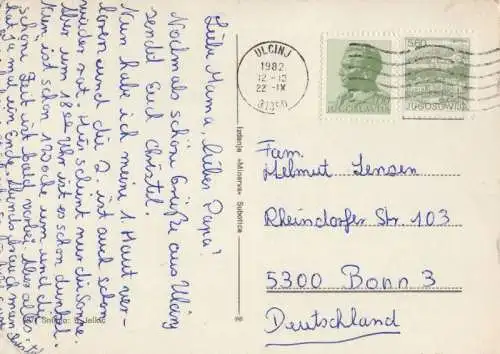 Liebe Mama, lieber Papa!
Nochmals schöne Grüße aus Ulcinj
sendet Euch Christel.
Nun habe ich meine 1 Haut ver-
loren und die 2 ist auch schon
wieder rot. Hier scheint nur die Sonne.
Aber um 18 Uhr ist es schon dunkel.
Nun ist schon 1 Woche um und die
schöne Zeit ist bald vorbei. Aber alles
hat a mal ein Ende. Abends braucht man
Izdanje »Minerva« Subotica
Snimio:
ULCINJ
1982
12-12
22-IX
5.60
JUGOSLAVIJA
Fam.
Helmut Jensen
Rheindorfer Str. 103
5300 Bonn 3
Deutschland